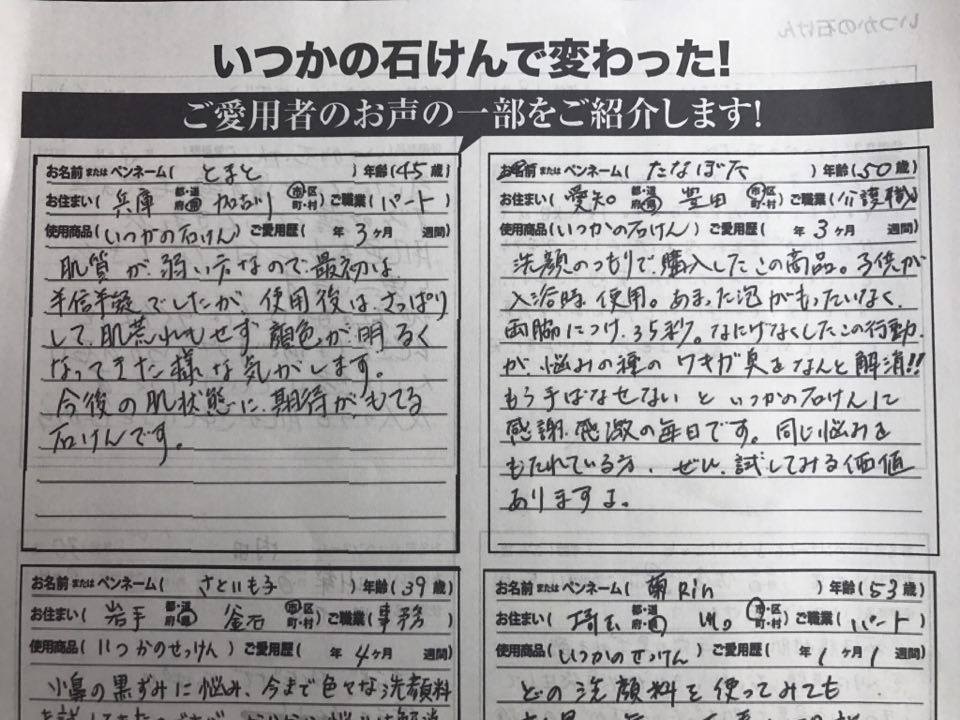 いつかの石けんで変わった!
ご愛用者のお声の一部をご紹介します!
お名前またはペンネーム( とまと )年齢(45歳)
お住まい( 兵庫 都・道府・県 加古川 市・区町・村 )ご職業( パート )
使用商品(いつかの石けん)ご愛用歴( 年 3ヶ月 週間)
肌質が弱い方なので、最初は
半信半疑でしたが、使用後は、さっぱり
して、肌荒れもせず、顔色が明るく
なってきた様な気がします。
今後の肌状態に、期待が、もてる
石けんです。
お名前またはペンネーム( たなぼた )年齢(50歳)
お住まい( 愛知 都・道府・県 豊田 市・区町・村 )ご職業(介護職)
使用商品(いつかの石けん)ご愛用歴( 年 3ヶ月 週間)
洗顔のつもりで、購入したこの商品。子供が
入浴時、使用。あまった泡がもったいなく、
両脇につけ、35秒。なにげなくしたこの行動
が、悩みの種の ワキガ臭をなんと解消!!
もう手ばなせない と いつかの石けんに
感謝、感激の毎日です。同じ悩みを
もたれている方、ぜひ、試してみる価値
ありますよ。
お名前またはペンネーム( さといも子 )年齢(39歳)
お住まい( 岩手 都・道府・県 釜石 市・区町・村 )ご職業(事務)
使用商品(いつかのせっけん)ご愛用歴( 年 4ヶ月 週間)
小鼻の黒ずみに悩み、今まで色々な洗顔料
お名前またはペンネーム( 蘭Rin )年齢(53歳)
お住まい( 埼玉 都・道府・県 市・区町・村 )ご職業(パート)
使用商品(いつかのせっけん)ご愛用歴( 年 1ヶ月 1週間)
どの洗顔料を使ってみても